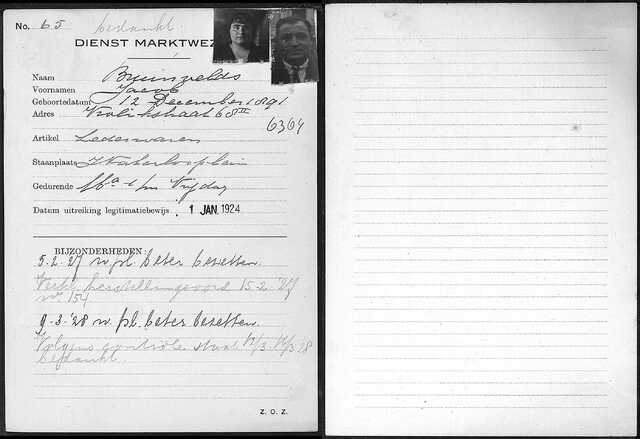 No. 65 bedankt.
DIENST MARKTWEZ
Naam Bruinvelds
Voornamen Jacob
Geboortedatum 12 December 1891
Adres Vrolikstraat 68 II
6364
Artikel Lederwaren
Staanplaats Waterlooplein
Gedurende Ma t/m Vrijdag
Datum uitreiking legitimatiebewijs. 1 JAN. 1924
BIJZONDERHEDEN:
5.2.'27 w. pl. beter bezetten.
15-2-'27
no 154
9-3-'28 w. pl. beter bezetten.
Volgens controle staat 12/3 14/3 '28
bedankt.
Z. O. Z.